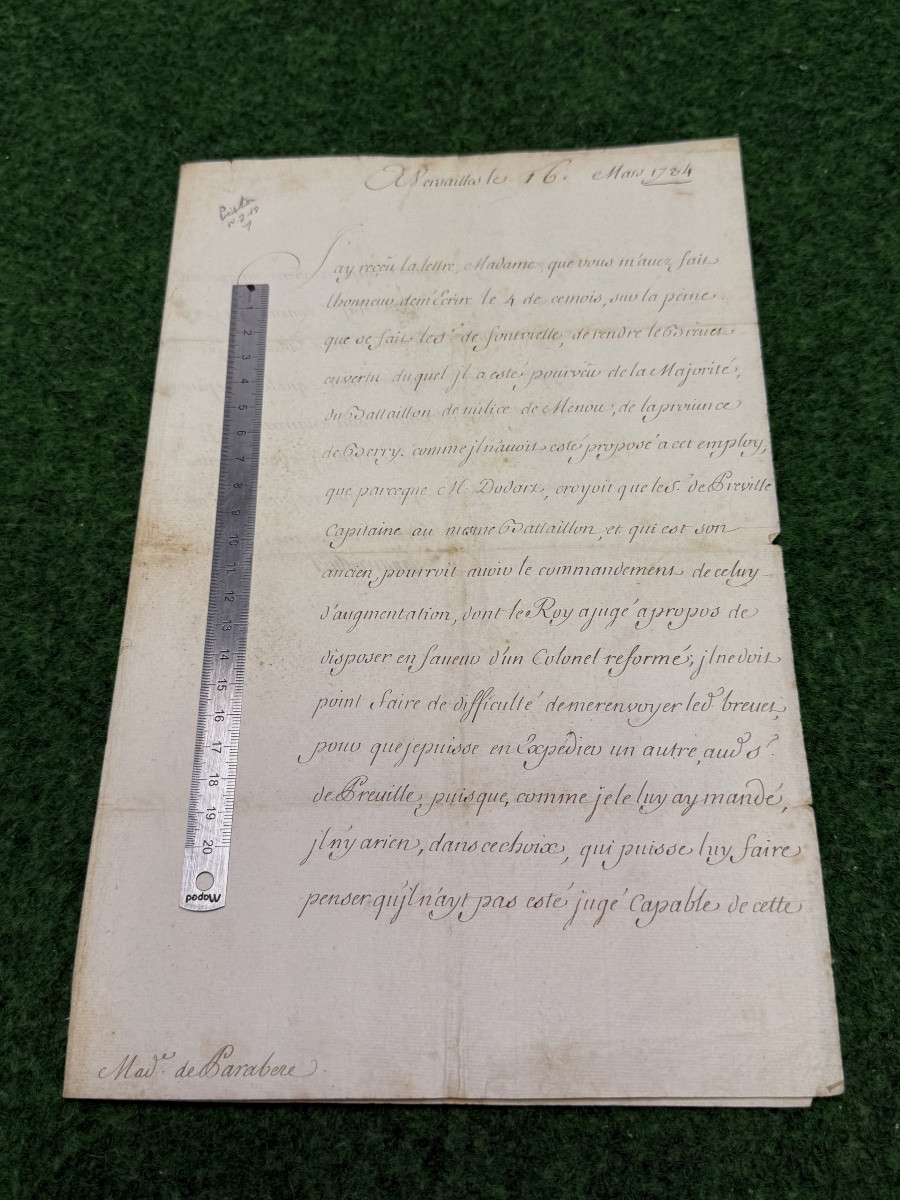 A Versailles le 16. Mars 1734
J'ay reçeu la lettre, Madame, que vous m'avez fait
lhonneur de m'Ecrire le 4 de ce mois, sur la peine
que se fait le Sr. de fontvielle, de rendre le Brevet
en vertu duquel jl a esté pourvëu de la Majorité,
du Battaillon de milice de Menou, de la province
de Berry. comme jl n'avoit esté proposé a cet employ,
que parceque M. Dodart, croyoit que le S. de Preville
Capitaine au mesme Battaillon, et qui est son
ancien, pourroit avoir le commandement de celuy
d'augmentation, dont le Roy a jugé apropos de
disposer en faveur d'un Colonel reformé, jl ne doit
point faire de difficulté de me renvoyer led. brevet,
pour que je puisse en Expedier un autre, aud. Sr.
de Preville, puisque, comme je le luy ay mandé,
jl n'y a rien, dans ce choix, qui puisse luy faire
penser qu'jl n'ayt pas esté jugé Capable de cette
Made. de Parabere
1
2
3
4
5
6
7
8
9
10
11
12
13
14
15
16
17
18
19
20
Moped